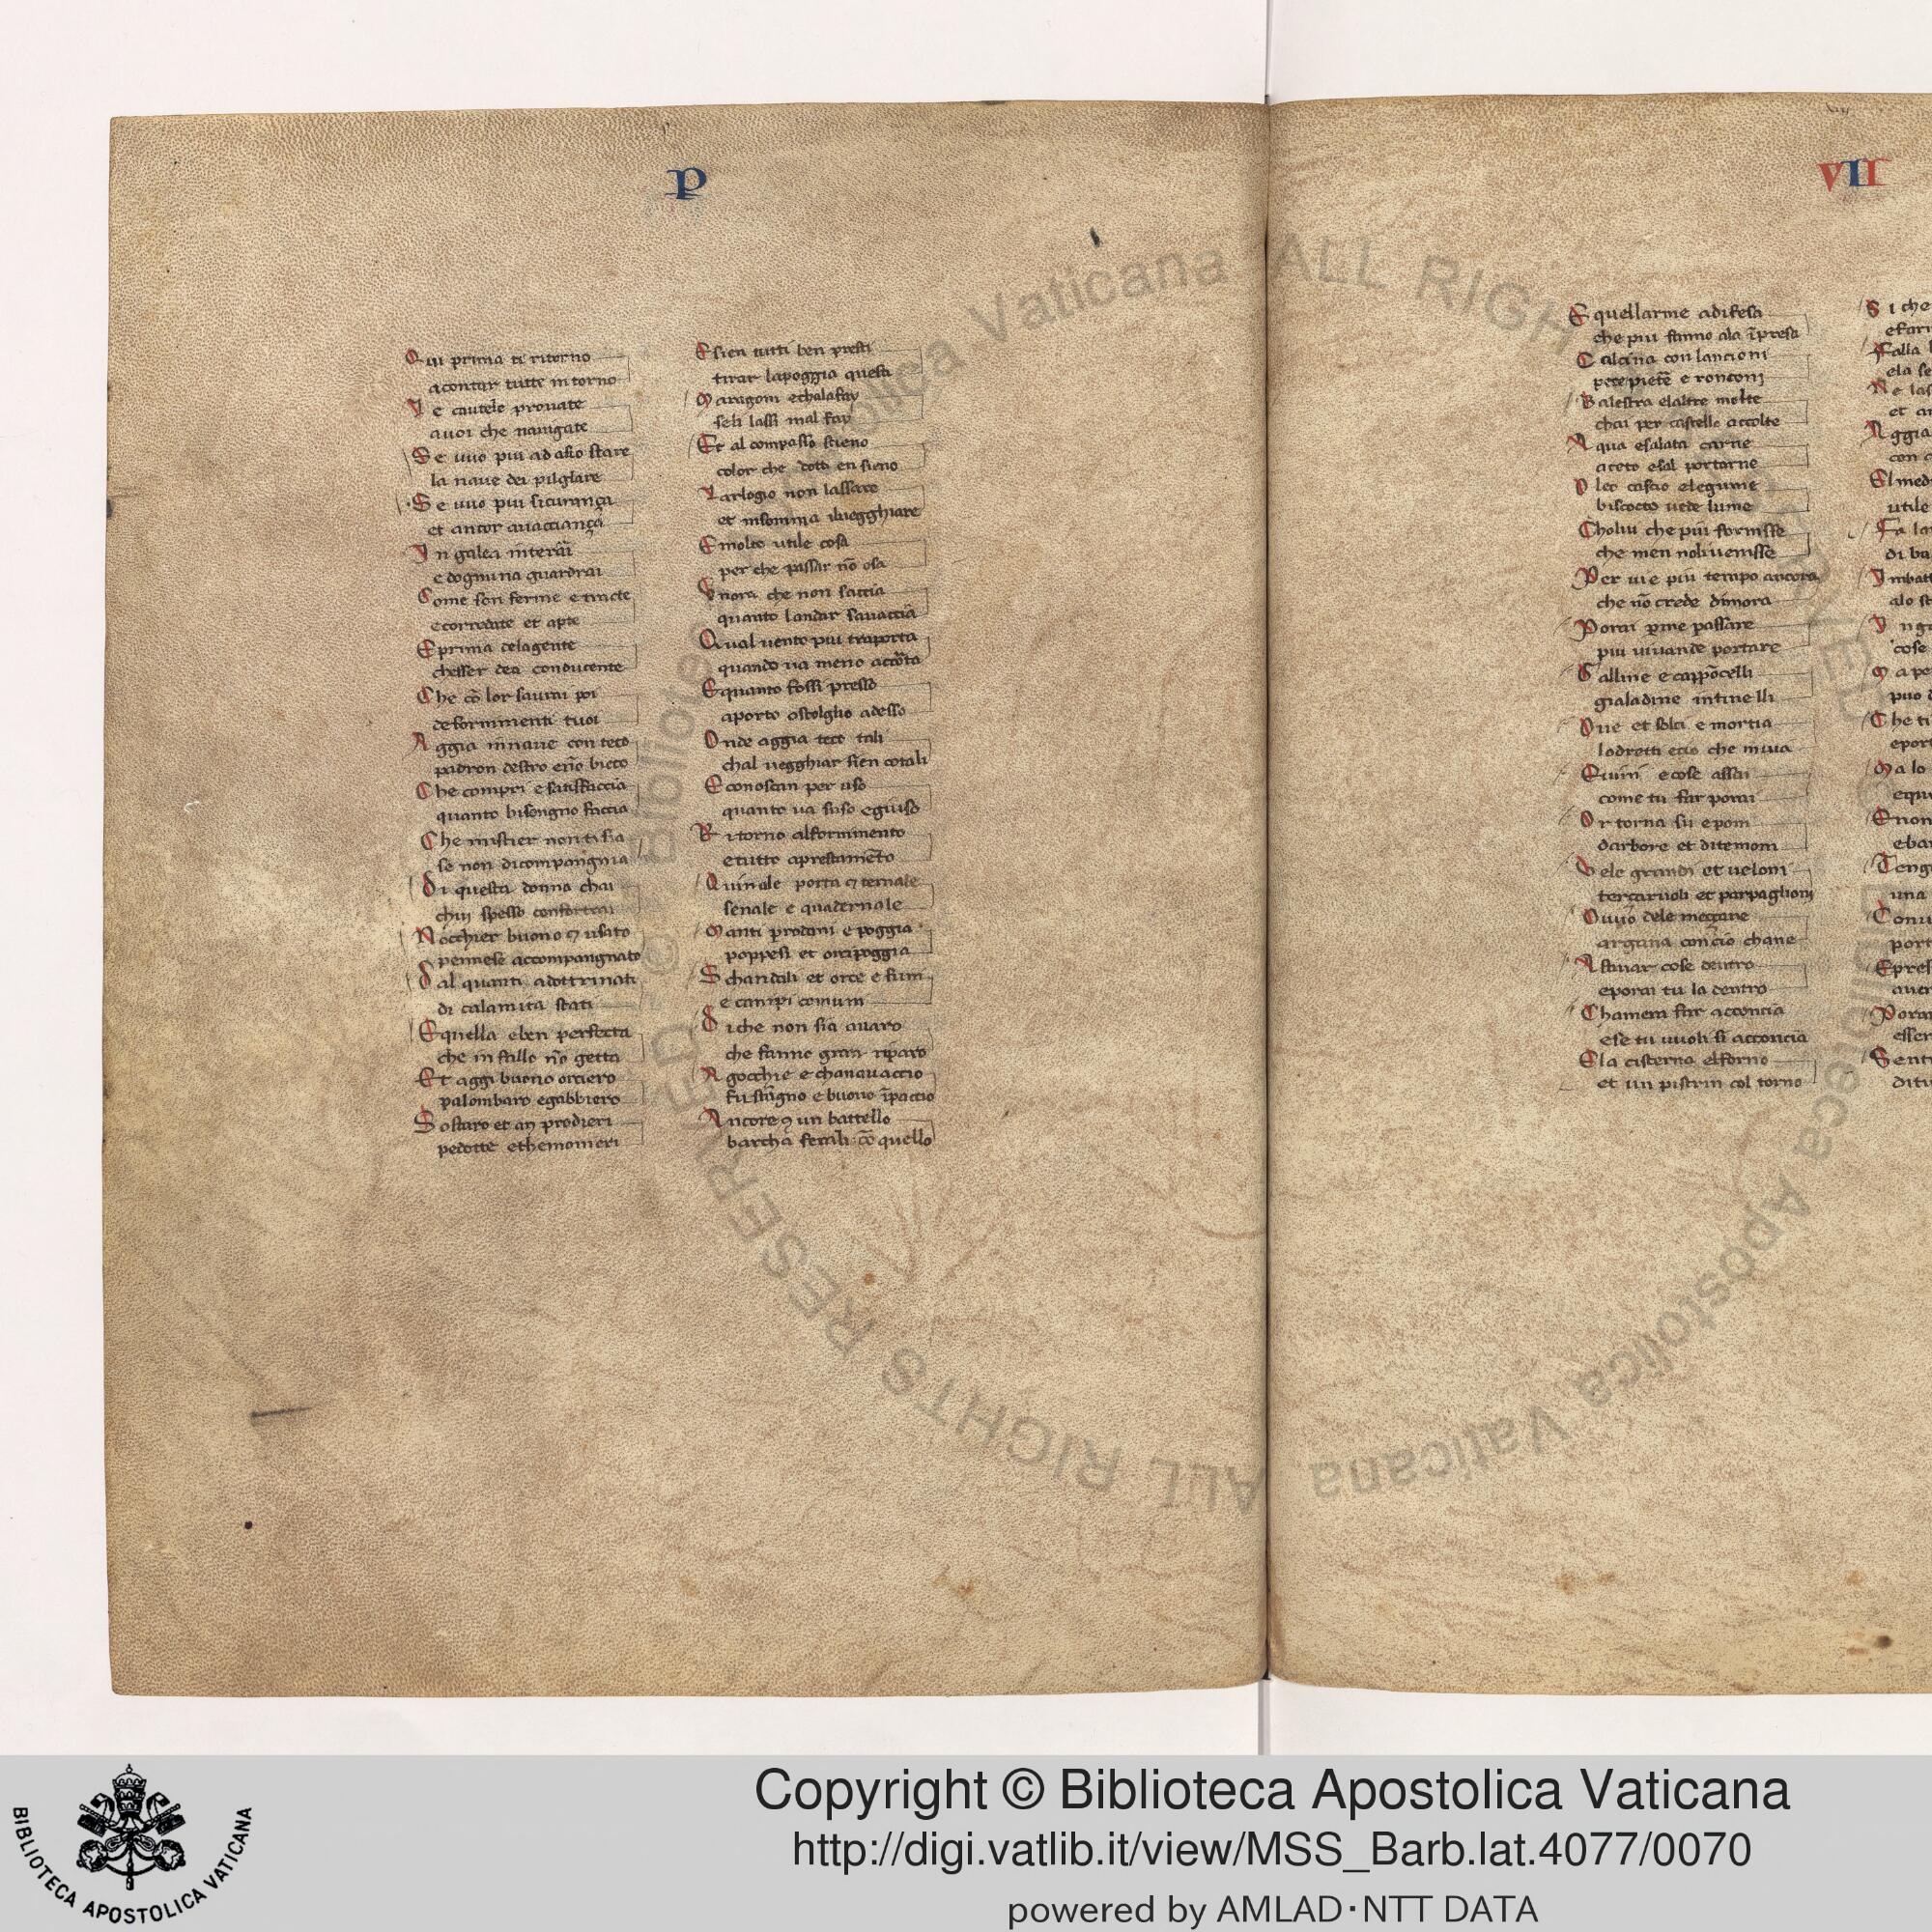 P
Qui prima ti ritorno
acontar tutte intorno
Le cautele prouate
auoi che nauigate
Se uuo piu ad asio stare
la naue dei pilglare
Se uuo piu sicurança
et ancor auacciança
In galea interāi
e dognuna guardrai
Come son ferme e tracte
ecorredate et apte
E prima delagente
chesser dea conducente
Che cō lor saurai poi
deforninenti tuoi
Aggia innaue con teco
padron destro enō bieco
Che compri e satisfaccia
quanto bisongno faccia
Che mistier non ti sia
se non dicompangnia
Di questa donna chai
chui spesso confortrai
Nocchier buono ꝯ usato
pennese accompangnato
Dal quanti adottrinati
di calamita stati
Equella eben perfecta
che in fallo nō getta
Et aggi buono orciero
palombaro egabbiero
Sostaro et an prodieri
pedotte ethemonieri
Esien tutti ben presti
tirar lapoggia questi
Maragoni echalafay
seli lassi mal fay
Et al compasso stieno
color che dotti en sieno
Larlogio non lassare
et insomma iluegghiare
Emolto utile cosa
per che passar nō osa
Vnora che non saccia
quanto landar sauaccia
Qual uento piu traporta
quando ua meno accorta
Equanto fossi presso
aporto oscolglio adesso
Onde aggia teco tali
chal uegghiar sien cotali
Econoscan per uso
quanto ua suso egiuso
Ritorno alfornimento
etutto aprestamēto
Quinale porta ꝯ ternale
senale e quadernale
Manti prodani e poggia
poppesi et orcipoggia
Schandali et orce e funi
e canipi comuni
Siche non sia auaro
che fanno gran riparo
Agocchie e chanauaccio
fustagno e buono īpaccio
Ancore ꝯ un battello
barcha fetali cō quello
VII
E quellarme adifesa
che piu fanno ala īpresa
Calcina con lancioni
pece pietre e ronconi
Balestra elaltre molte
chai per castello accolte
Aqua esalata carne
aceto esal portarne
Oleo cascio elegume
biscocto uede lume
Choluu che piu fornisse
che men noliuenisse
Per uie piu tempo ancora
che nō crede dimora
Porai ꝑme passare
piu uiuande portare
Galline e cappōcelli
gialadine intinelli
Oue et solci e mortia
lodretti ecio che miua
Euini ecose assai
come tu far porai
Or torna su eponi
darbore et ditemoni
Vele grandi et ueloni
terçaruoli et parpaglioni
Ouuo dele meççane
argana concio chane
Astiuar cose dentro
eporai tu la dentro
Chamera far acconcia
ese tu uuoli si acconcia
Ela cisterna elforno
et un pistrin col torno
Si che
efari
Falla
ela se
Ne las
et an
Aggia
con
Elmed
utile
Fa la
di ba
Imbat
alo st
In ga
cose
Ma pe
puo
Che ti
eport
Ma lo
equi
Enon
eban
Teng
una
Conu
port
Epres
auer
Porai
esser
Senti
ditu
Copyright © Biblioteca Apostolica Vaticana
http://digi.vatlib.it/view/MSS_Barb.lat.4077/0070
powered by AMLAD·NTT DATA
BIBLIOTECA APOSTOLICA VATICANA